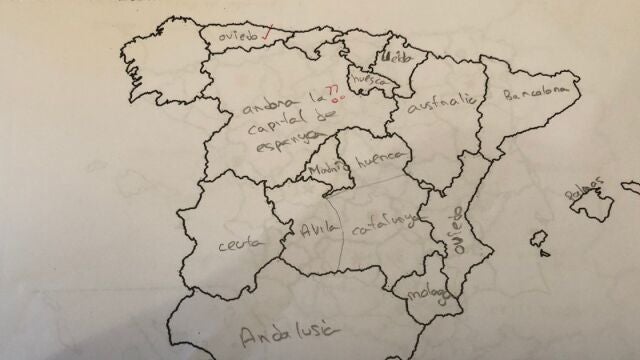 oviedo
lleida
huesca
andorra la ??
capital de
espanya
australia
Barcelona
Madrid
huenca
Palmas
ceuta
Avila
catalunya
oviedo
malaga
Andalusia